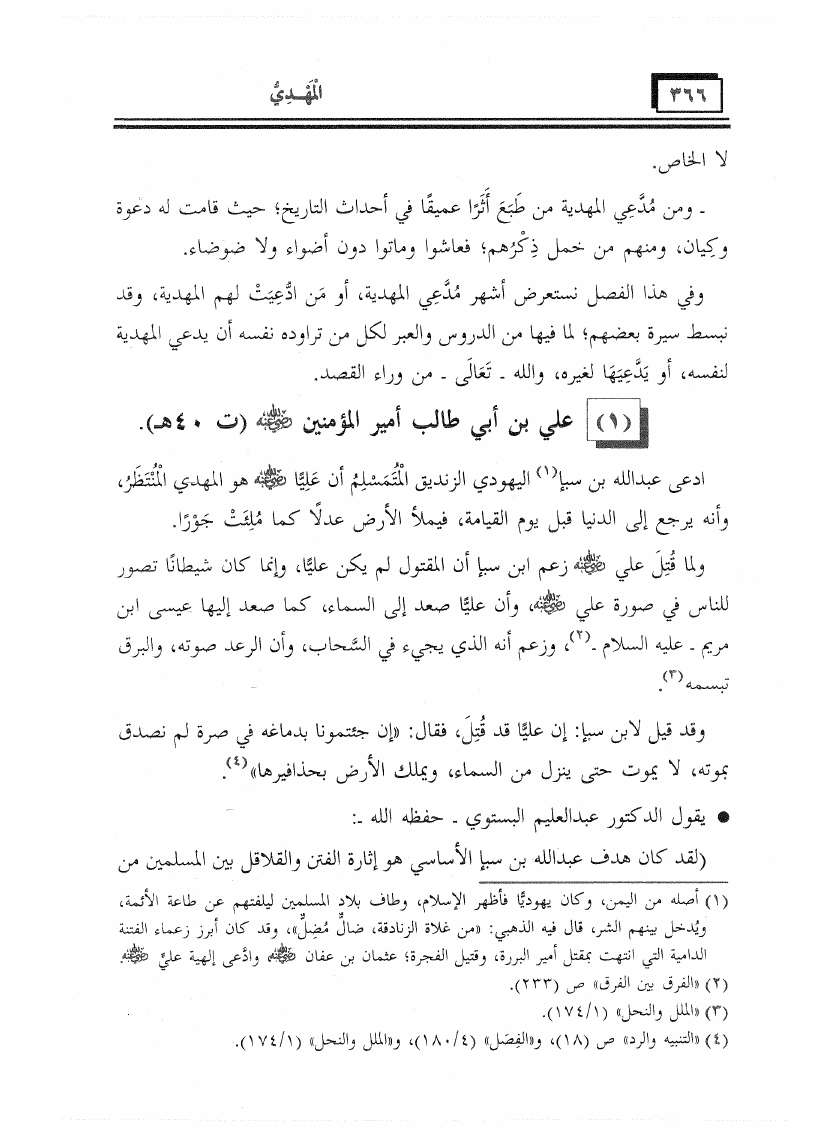 ٣٦٦ الْمَهْـدِيُّ
لا الخاص.
ـ ومن مُدَّعِي المهدية من طَبَعَ أَثَرًا عميقًا في أحداث التاريخ؛ حيث قامت له دعوة
وكِيان، ومنهم من خمل ذِكْرُهم؛ فعاشوا وماتوا دون أضواء ولا ضوضاء.
وفي هذا الفصل نستعرض أشهر مُدَّعِي المهدية، أو مَن ادُّعِيَتْ لهم المهدية، وقد
نبسط سيرة بعضهم؛ لما فيها من الدروس والعبر لكل من تراوده نفسه أن يدعي المهدية
لنفسه، أو يَدَّعِيَهَا لغيره، والله ـ تَعَالَى ـ من وراء القصد.
(١) علي بن أبي طالب أمير المؤمنين رضي الله عنه (ت ٤٠هـ).
ادعى عبدالله بن سبإ(١) اليهودي الزنديق الْمُتَمَسْلِمُ أن عَلِيًّا رضي الله عنه هو المهدي الْمُنْتَظَرُ،
وأنه يرجع إلى الدنيا قبل يوم القيامة، فيملأ الأرض عدلًا كما مُلِئَتْ جَوْرًا.
ولما قُتِلَ علي رضي الله عنه زعم ابن سبإ أن المقتول لم يكن عليًّا، وإنما كان شيطانًا تصور
للناس في صورة علي رضي الله عنه، وأن عليًّا صعد إلى السماء، كما صعد إليها عيسى ابن
مريم ـ عليه السلام ـ(٢)، وزعم أنه الذي يجيء في السَّحاب، وأن الرعد صوته، والبرق
تبسمه(٣).
وقد قيل لابن سبإ: إن عليًّا قد قُتِلَ، فقال: «إن جئتمونا بدماغه في صرة لم نصدق
بموته، لا يموت حتى ينزل من السماء، ويملك الأرض بحذافيرها»(٤).
● يقول الدكتور عبدالعليم البستوي ـ حفظه الله ـ:
(لقد كان هدف عبدالله بن سبإ الأساسي هو إثارة الفتن والقلاقل بين المسلمين من
(١) أصله من اليمن، وكان يهوديًّا فأظهر الإسلام، وطاف بلاد المسلمين ليلفتهم عن طاعة الأئمة،
ويُدخل بينهم الشر، قال فيه الذهبي: «من غلاة الزنادقة، ضالٌّ مُضِلٌّ»، وقد كان أبرز زعماء الفتنة
الدامية التي انتهت بمقتل أمير البررة، وقتيل الفجرة؛ عثمان بن عفان رضي الله عنه، وادَّعى إلهية عليٍّ رضي الله عنه.
(٢) «الفرق بين الفرق» ص (٢٣٣).
(٣) «الملل والنحل» (١٧٤/١).
(٤) «التنبيه والرد» ص (١٨)، و«الفِصَل» (١٨٠/٤)، و«الملل والنحل» (١٧٤/١).